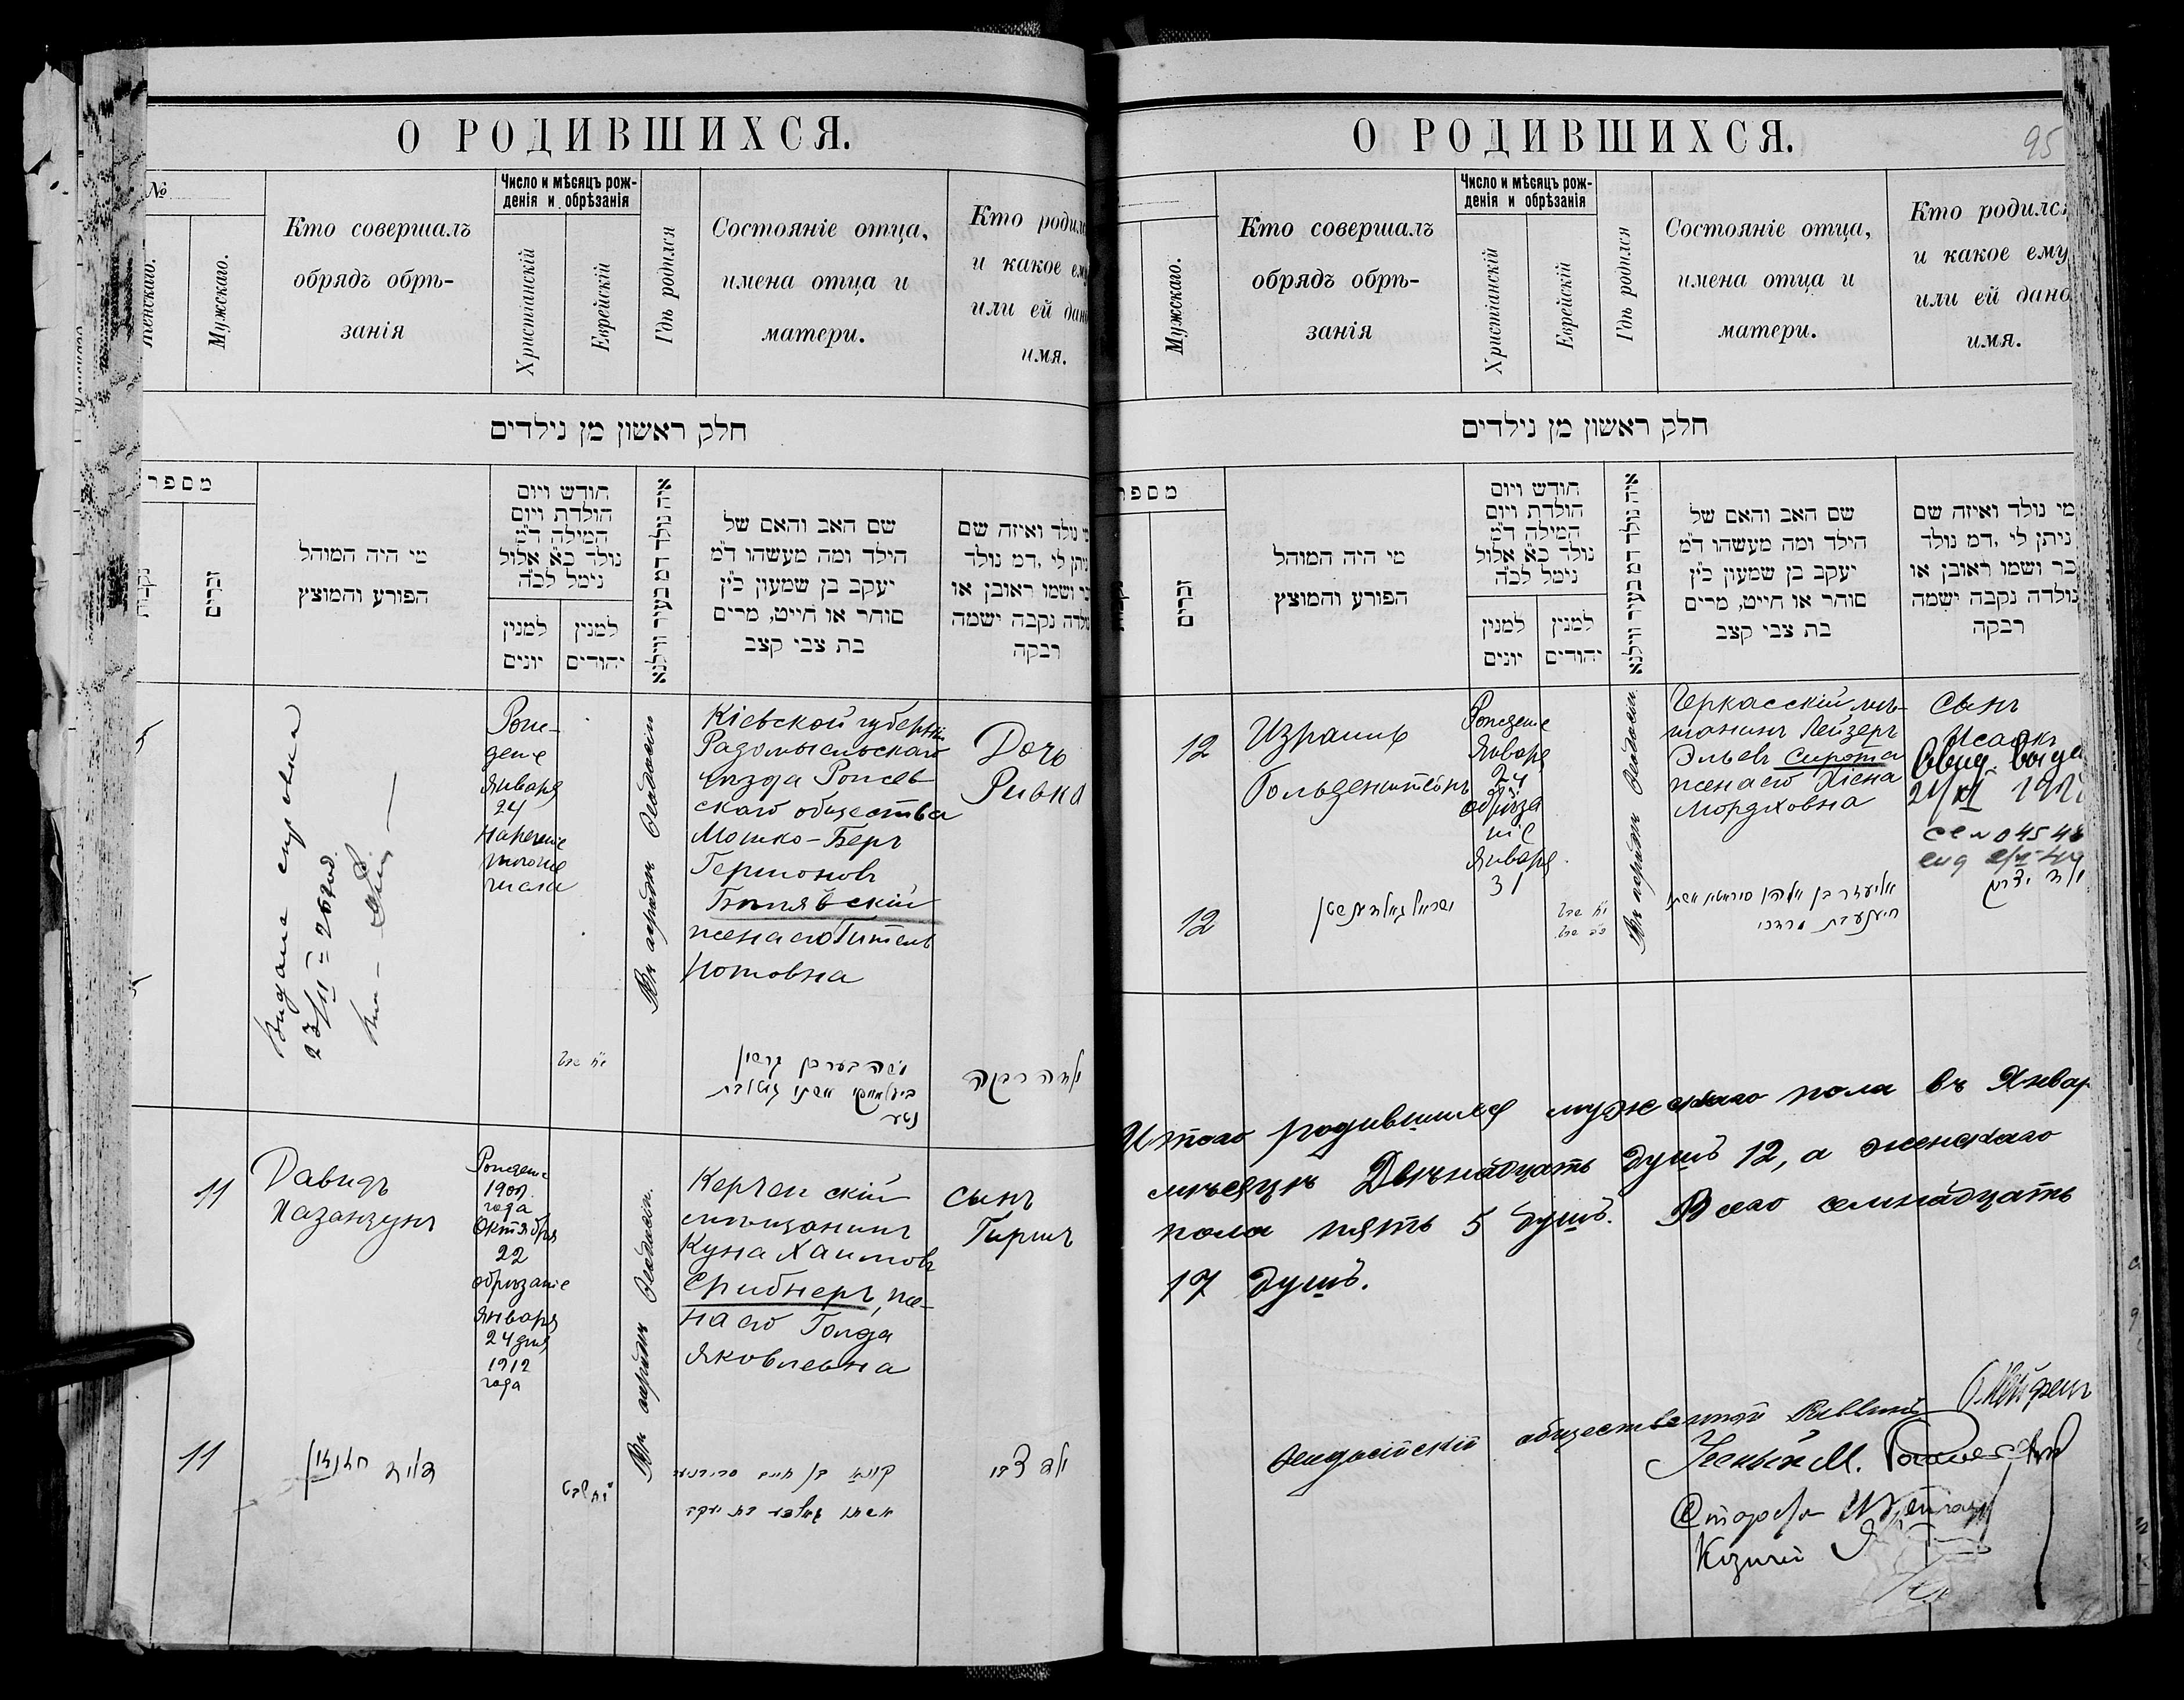 О РОДИВШИХСЯ.
№
Женскаго.
Мужскаго.
Кто совершалъ
обрядъ обрѣ-
занія
Число и мѣсяцъ рож-
денія и обрѣзанія
Христіанскій
Еврейскій
Гдѣ родился
Состояніе отца,
имена отца и
матери.
Кто родилс
и какое ему
или ей дано
имя.
חלק ראשון מן נילדים
מספר
זכרים
מי היה המוהל
הפורע והמוצץ
חודש ויום
הולדת ויום
המילה ד״מ
נולד כ״א אלול
נימל לכ״ה
למנין
יונים
למנין
יהודים
איה נולד דמ בעיר ווילנא
שם האב והאם של
הילד ומה מעשהו ד״מ
יעקב בן שמעון כ״ץ
סוחר או חייט, מרים
בת צבי קצב
מי נולד ואיזה שם
ניתן לי, דמ נולד
זכר ושמו ראובן או
נולדה נקבה ישמה
רבקה
5
Выдана справка
23/II = 26 год.
Рож-
деніе
Января
24
Нареченіе
того же
числа
Въ городѣ Ѳеодосіи
Кіевской губерніи
Радомысльскаго
уѣзда Рожев
скаго общества
Мошко-Беръ
Гершоновъ
жена его Гитель
Нотовна
Дочь
Ривка
5
י״ח שבט
משה בער בן גרשון
נטע
ילדה רבקה
11
Давидъ
Хазанзунъ
Рожденіе
1901
года
Октября
22
обрѣзаніе
Января
24 дня
1912
года
Въ городѣ Ѳеодосіи.
Керченскій
мѣщанинъ
Куна Хаимовъ
Срибнеръ, же-
на его Голда
Яковлевна
сынъ
Гиршъ
11
דוד חזנזון
ילד צבי
О РОДИВШИХСЯ.
95
Мужскаго.
Кто совершалъ
обрядъ обрѣ-
занія
Число и мѣсяцъ рож-
денія и обрѣзанія
Христіанскій
Еврейскій
Гдѣ родился
Состояніе отца,
имена отца и
матери.
Кто родился
и какое ему
или ей дано
имя.
חלק ראשון מן נילדים
מספר
זכרים
מי היה המוהל
הפורע והמוצץ
חודש ויום
הולדת ויום
המילה ד״מ
נולד כ״א אלול
נימל לכ״ה
למנין
יונים
למנין
יהודים
איה נולד דמ בעיר ווילנא
שם האב והאם של
הילד ומה מעשהו ד״מ
יעקב בן שמעון כ״ץ
סוחר או חייט, מרים
בת צבי קצב
מי נולד ואיזה שם
ניתן לי, דמ נולד
זכר ושמו ראובן או
נולדה נקבה ישמה
רבקה
12
Израиль
Гольденштейнъ
Рожденіе
Января
24
обрѣза
ніе
Января
31
Въ городѣ Ѳеодосіи
Черкасскій мѣ-
щанинъ Лейзеръ
Эльевъ Сирота
жена его Хієна
Мордковна
сынъ
Исаакъ
12
ישראל גאלדענשטין
י״ח שבט
כ״ה שבט
ילד יצחק
Итого родившихся мужскаго пола въ Январ
мѣсяцѣ Двѣнадцать душъ 12, а женскаго
пола пять 5 душъ. Всего семнадцать
17 душъ.
Ѳеодосійскій общественный Раввинъ
Ученый М.
Староста
Казначей